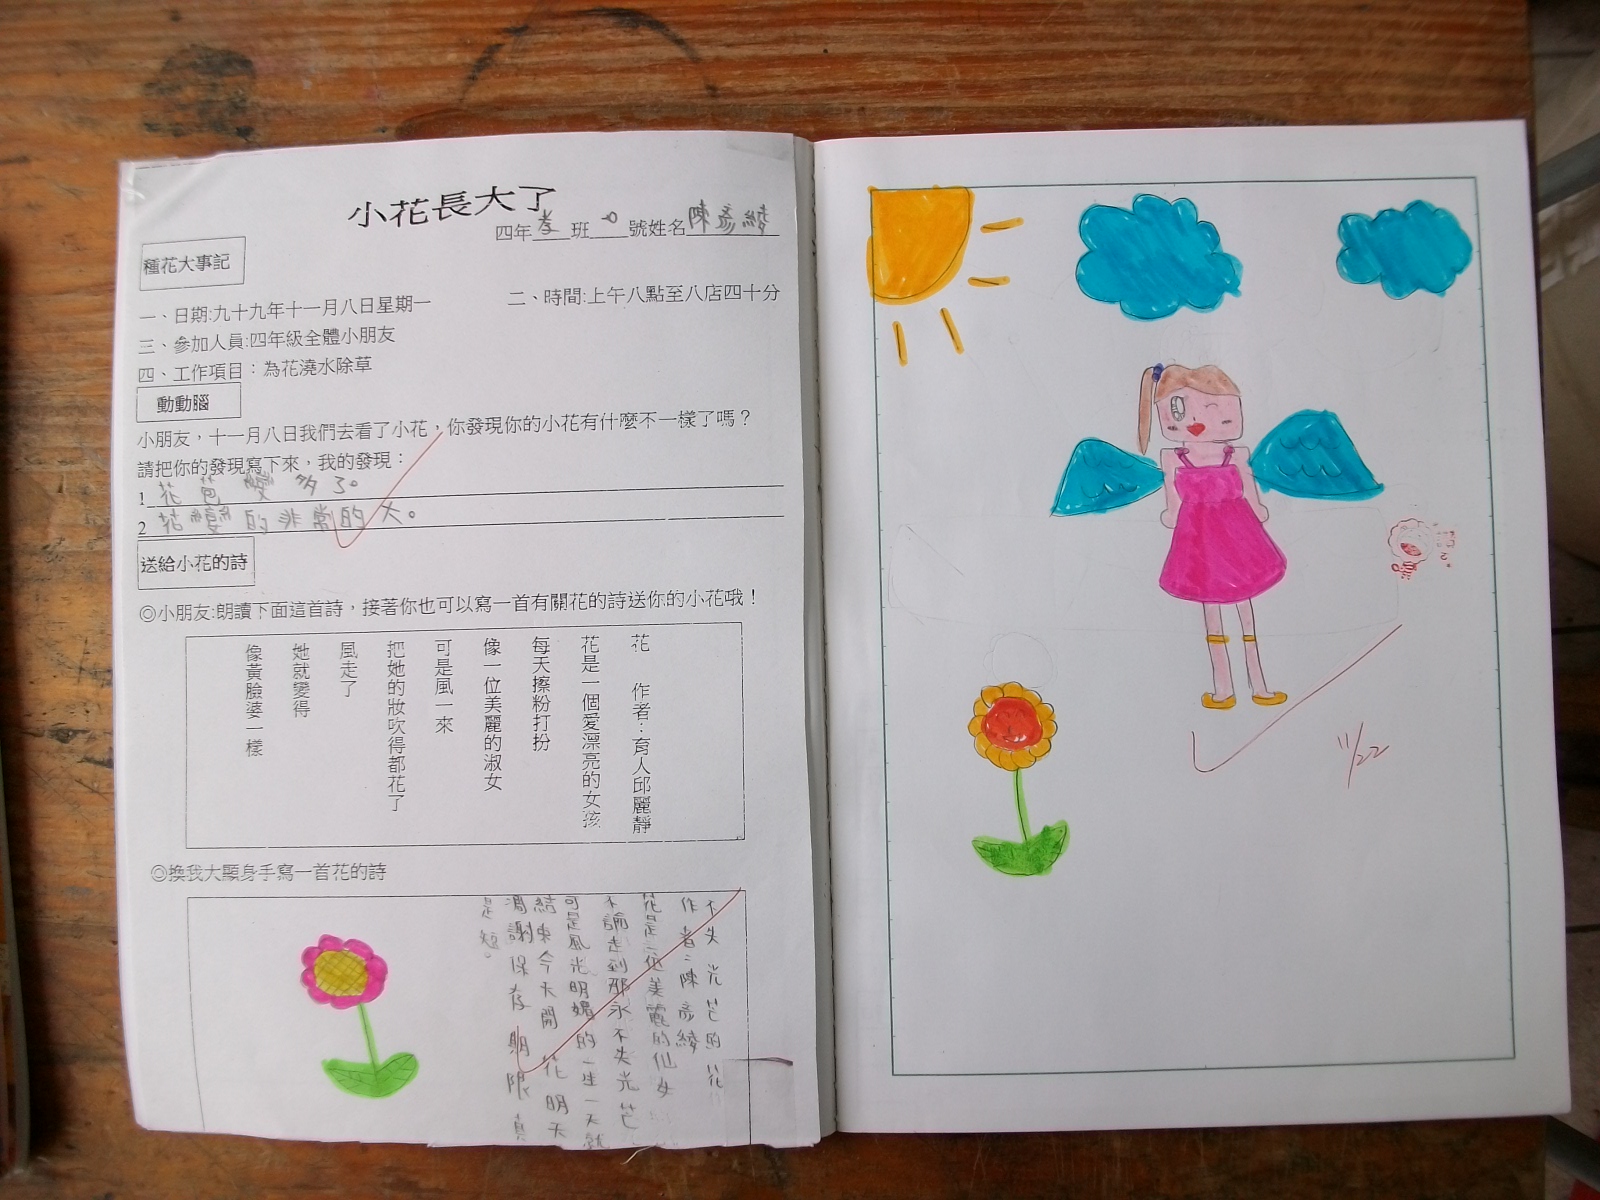 小花長大了
四年孝班 號姓名陳彥綾
種花大事記
一、日期:九十九年十一月八日星期一
二、時間:上午八點至八店四十分
三、參加人員:四年級全體小朋友
四、工作項目：為花澆水除草
動動腦
小朋友，十一月八日我們去看了小花，你發現你的小花有什麼不一樣了嗎？
請把你的發現寫下來，我的發現：
1 花苞變多了。
2 花變的非常的大。
送給小花的詩
◎小朋友:朗讀下面這首詩，接著你也可以寫一首有關花的詩送你的小花哦！
花 作者：育人邱麗靜
花是一個愛漂亮的女孩
每天擦粉打扮
像一位美麗的淑女
可是風一來
把她的妝吹得都花了
風走了
她就變得
像黃臉婆一樣
◎換我大顯身手寫一首花的詩
不失光芒的花
作者：陳彥綾
花是一位美麗的仙女
不論走到那永不失光芒
可是風光明媚的一生一天就
結束今天開花明天
凋謝保存期限真
是短。
11/22